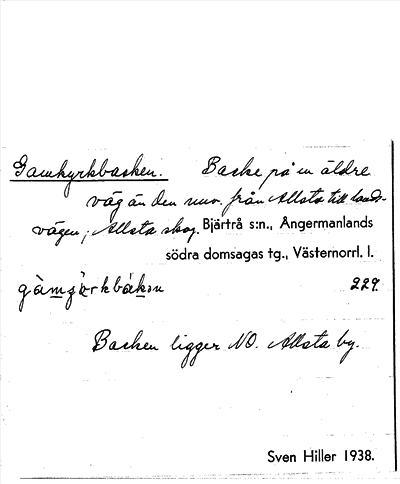 Gamkyrkbacken. Backe på en äldre
väg än den nuv. från Allsta till lands-
vägen; Allsta skog. Bjärtrå s:n., Ångermanlands
södra domsagas tg., Västernorrl. l.
229.
Backen ligger NO. Allsta by.
Sven Hiller 1938.